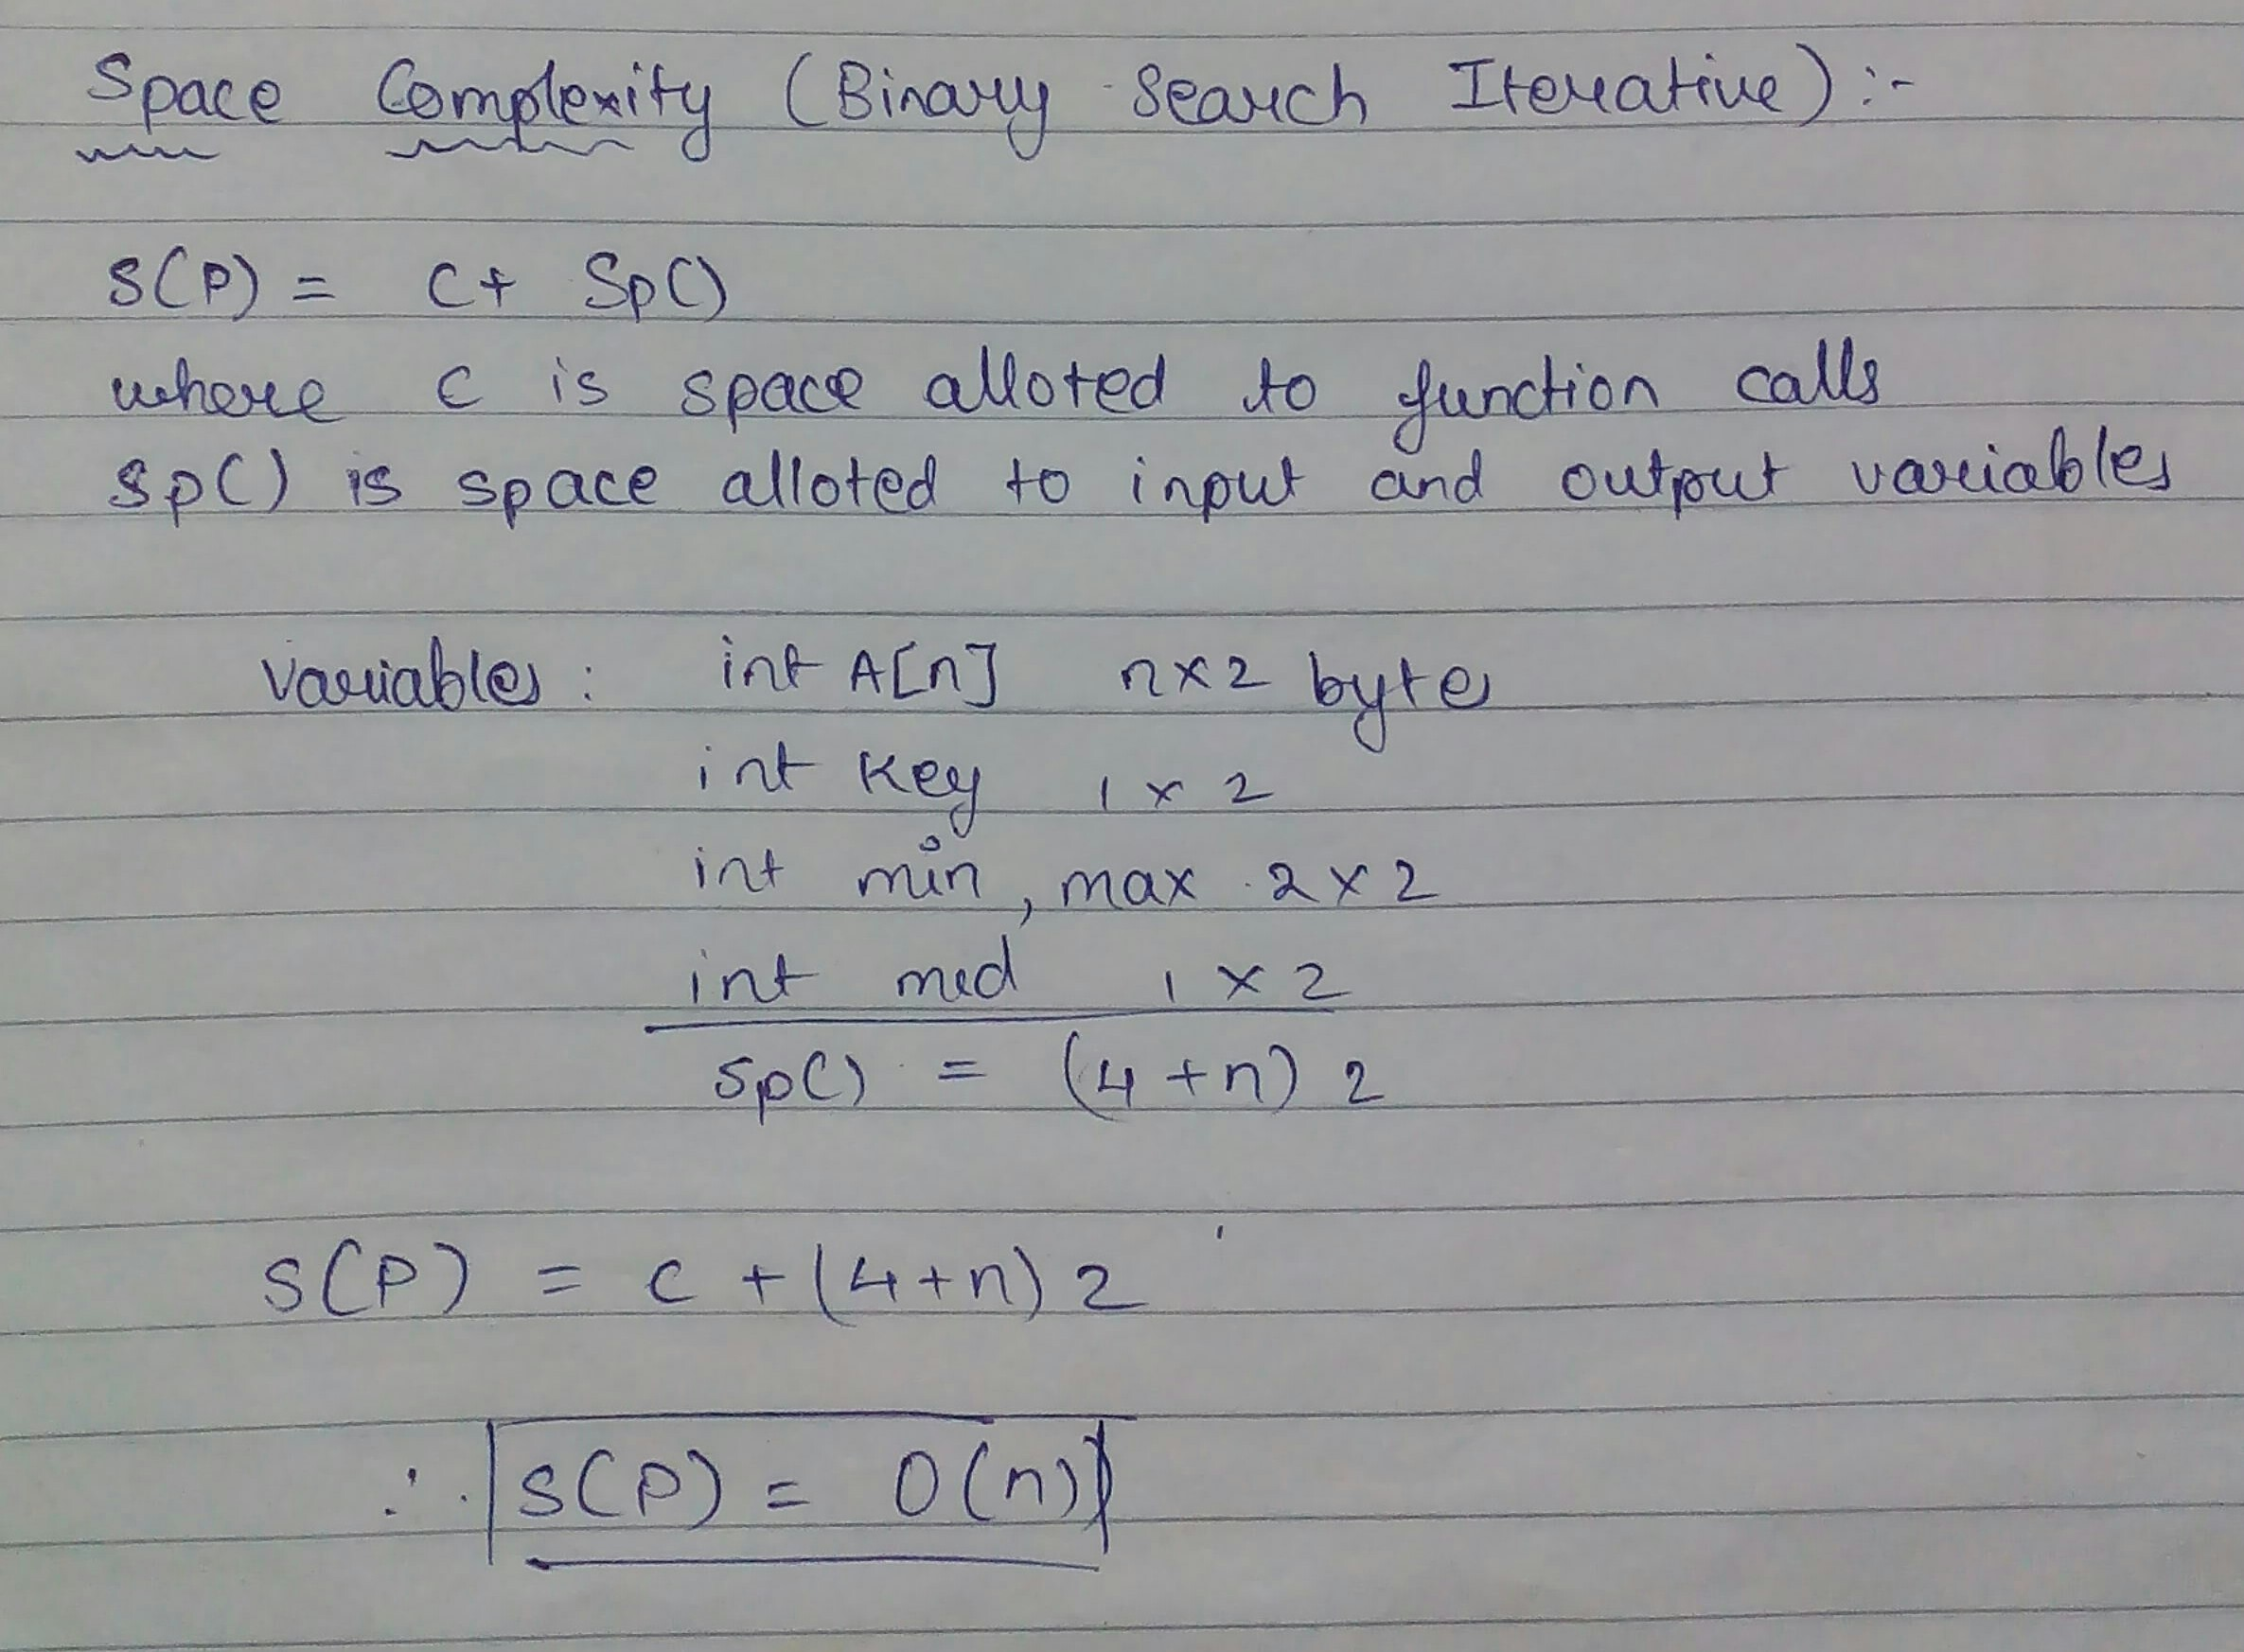 Space Complexity (Binary Search Iterative) :-
S(P) = C + Sp()
where C is space alloted to function calls
Sp() is space alloted to input and output variables
variables : int A[n] n×2 bytes
int key 1 × 2
int min, max 2 × 2
int mid 1 × 2
Sp() = (4 + n) 2
S(P) = C + (4+n) 2
∴ S(P) = O(n)